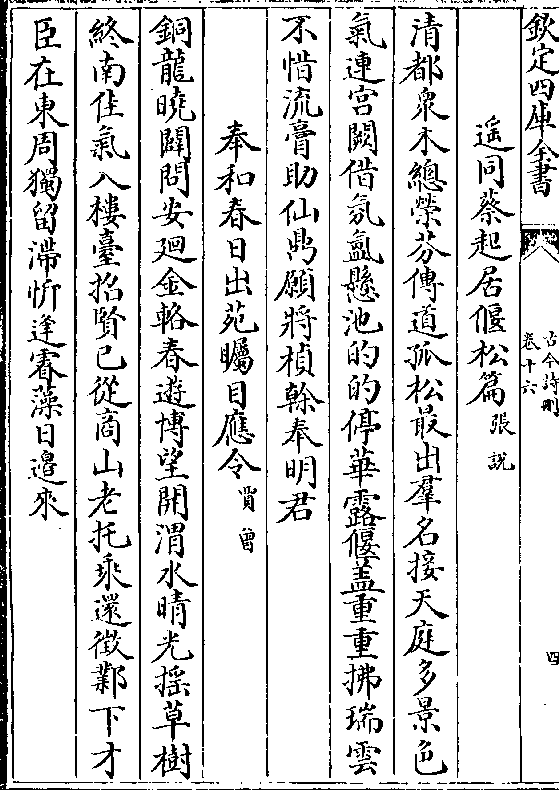 欽定四庫全書
古今詩刪
卷十六
四
遥同蔡起居偃松篇 張說
清都衆木總榮芬傳道孤松最出羣名接天庭多景色
氣連宮闕借氛氲懸池的的停華露偃蓋重重拂瑞雲
不惜流膏助仙鼎願將楨幹奉明君
奉和春日出苑矚目應令 賈曾
銅龍曉闢問安廻金輅春遊博望開渭水晴光揺草樹
終南佳氣入樓臺招賢已從商山老托乗還徴鄴下才
臣在東周獨留滯忻逢睿藻日邉來